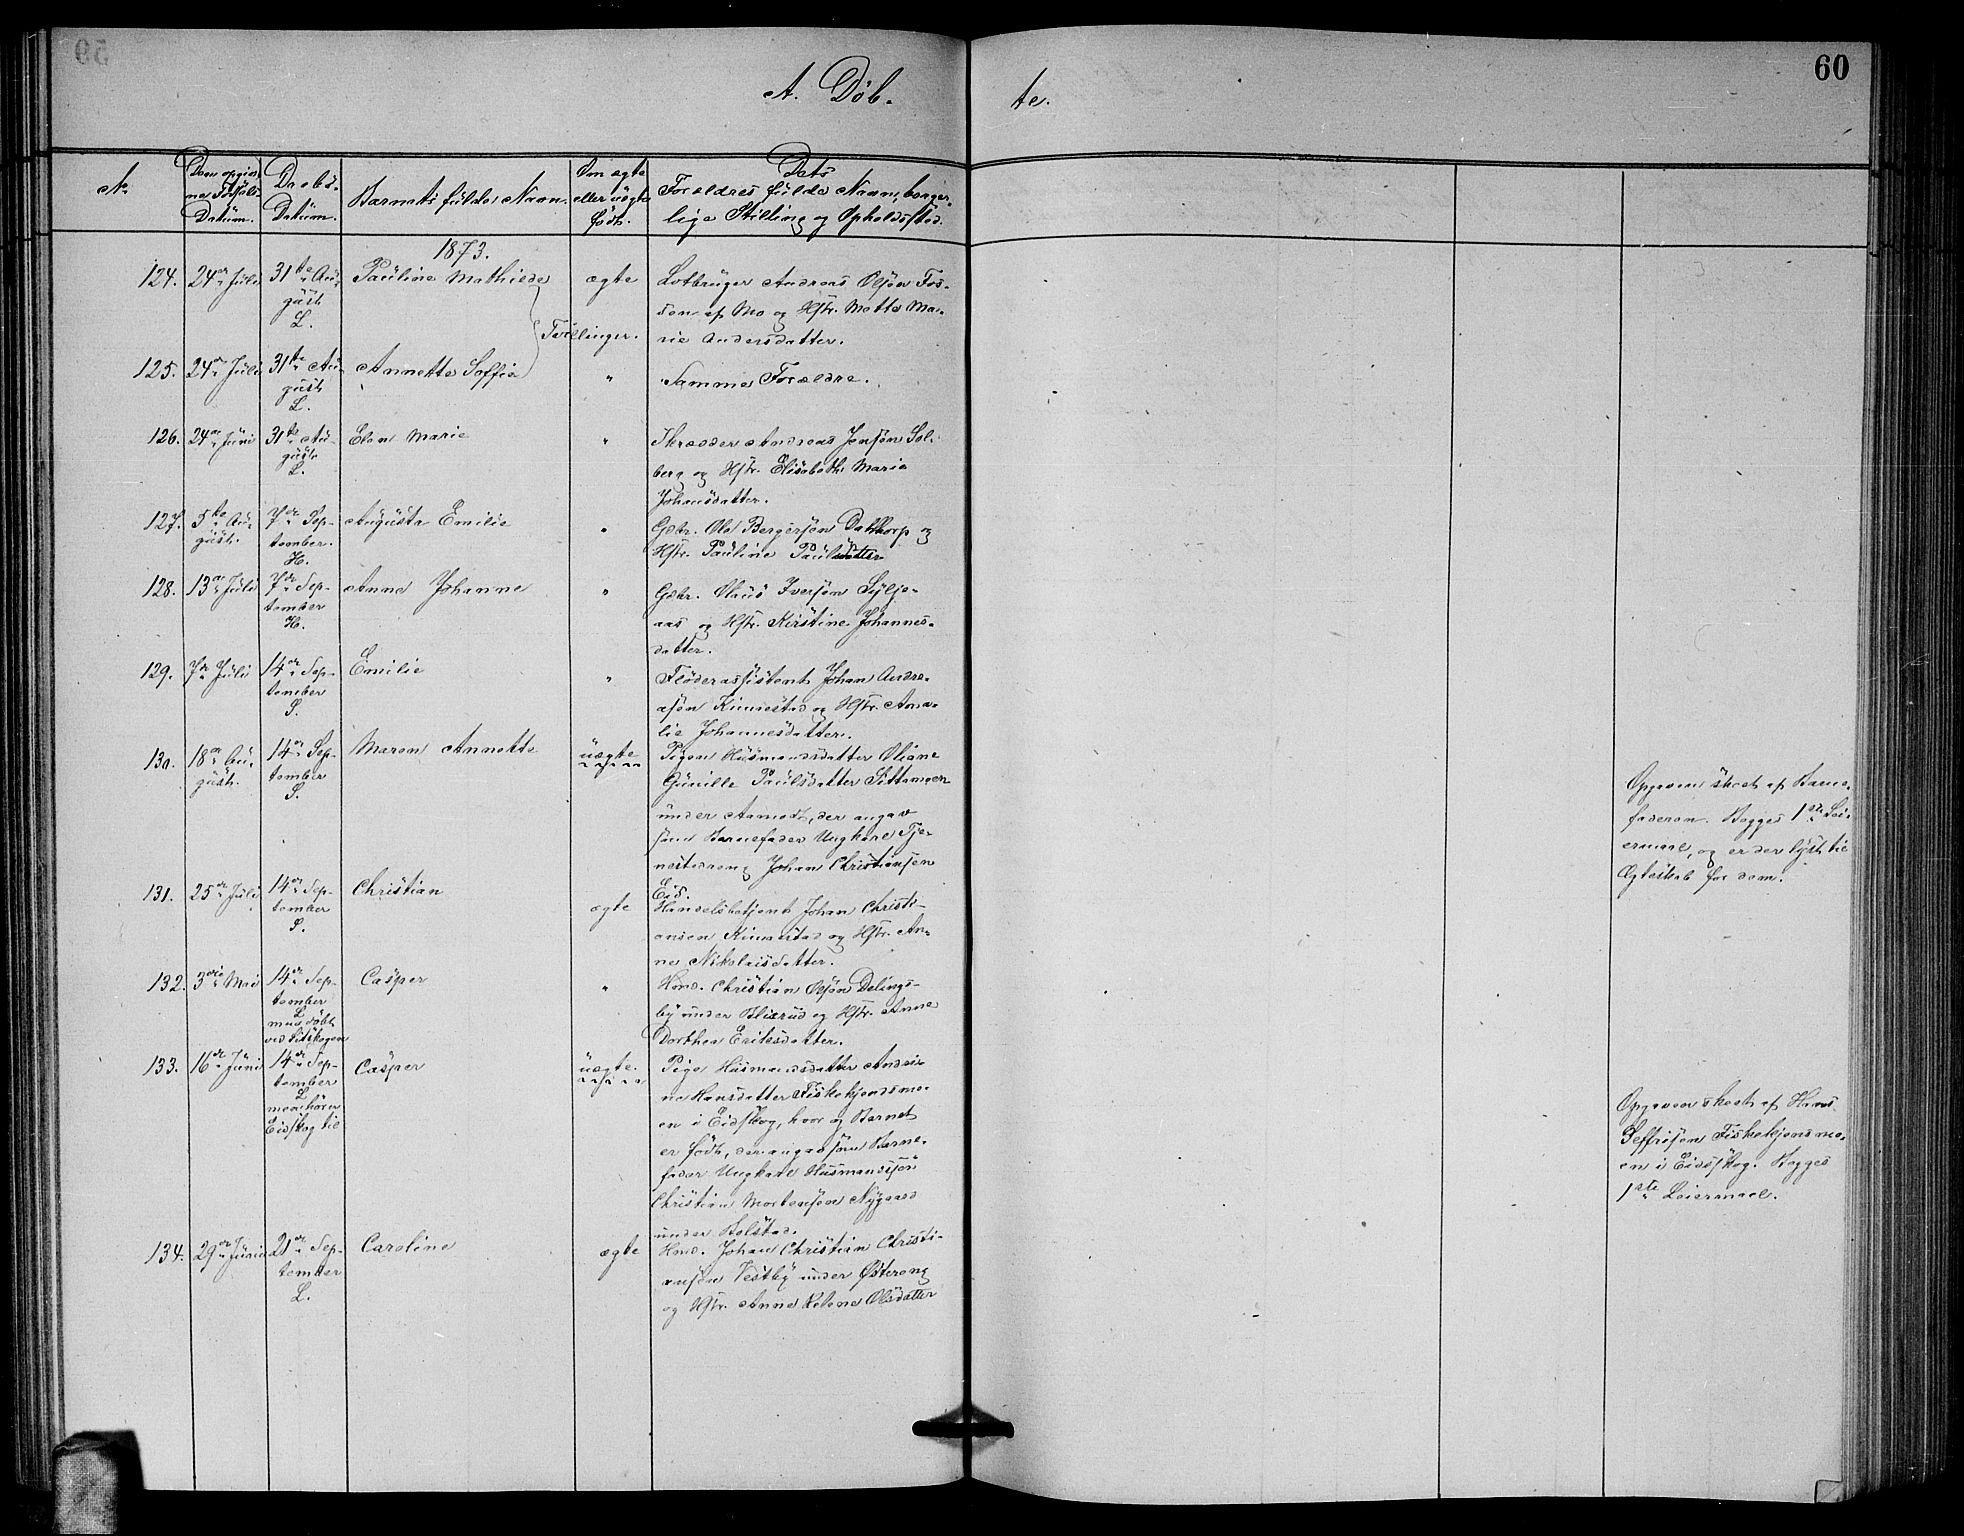 59
60
A. Døb-
te.
No
Den opgiv-
ne Fødsels-
Datum.
Daabs-
Datum.
Barnets fulde Navn.
Om ægte
eller uægte
født.
Dets
Forældres fulde Navn, borger-
lige Stilling og Opholdssted.
1873.
124.
24de Juli
31te Au-
gust
L.
Pauline Mathilde
ægte
Lotbruger Andreas Olsøn Fos-
sen af Mo og Hstr. Mathea Ma-
rie Andersdatter.
Tvillinger.
125.
24de Juli
31te Au-
gust
L.
Annette Soffie
"
Samme Forældre.
126.
24de Juni
31te Au-
gust
L.
Elen Marie
"
Skrædder Andreas Jensøn Sol-
berg og Hstr. Elisabeth Marie
Johansdatter.
127.
5te Au-
gust.
7de Sep-
tember.
H.
Augusta Emilie
"
Gbr. Ole Bergersøn Dahltorp og
Hstr. Pauline Paulsdatter
128.
13de Juli
7de Sep-
tember
H.
Anne Johanne
"
Gbr. Olaus Iversøn Sylje-
aas og Hstr. Kirstine Johannes-
datter.
129.
7de Juli
14de Sep-
tember
S.
Emilie
"
Fløderassistent Johan Andre-
asøn Kinnestad og Hstr. Ama-
lie Johannesdatter.
130.
18de Au-
gust.
14de Sep-
tember
S.
Maren Annette
uægte
Pigen Husmandsdatter Oliane
Gunille Paulsdatter
under Aamodt, der angav
som Barnefader Ungkarl Tje-
nestedreng Johan Christiansen
Eid.
Opgaven skeet af Barne-
faderen. Begges 1ste Lei-
ermaal, og er der lyst til
Ægteskab for dem.
131.
25de Juli
14de Sep-
tember
S.
Christian
ægte
Handelsbetjent Johan Christi-
ansen Kinnestad og Hstr. An-
ne Nikolaisdatter.
132.
3die Mai
14de Sep-
tember
L
men døbt
ved Eidskogen
Casper
"
Hmd. Christian Olsøn Delings-
by under Blixrud og Hstr. Anne
Dorthea Eriksdatter.
133.
16de Juni
14de Sep-
tember
L
men hører
Eidskog til
Casper
uægte.
Pige Husmandsdatter Andri-
ne Hansdatter Fiskekjendsmo-
en i Eidskog, hvor og Barnet
er født, der angav som Barne-
fader Ungkarl Husmandssøn
Christian Mortensøn Nygaard
under Bolstad.
Opgaven skeet af Hans
Geffrisøn Fiskekjensmo-
en i Eidsskog. Begges
1ste Leiermaal.
134.
29de Juni
21de Sep-
tember
L.
Caroline
ægte
Hmd. Johan Christian Christi-
ansøn Vestby under Østereng
og Hstr. Anne Helene Olsdatter